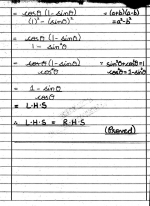 = cosθ (1 - sinθ) / (1)² - (sinθ)² ∵ (a+b)(a-b) = a² - b²
= cosθ (1 - sinθ) / 1 - sin²θ
= cosθ (1 - sinθ) / cos²θ ∵ sin²θ + cos²θ = 1
cos²θ = 1 - sin²θ
= 1 - sinθ / cosθ
= L.H.S
∴ L.H.S = R.H.S
(Proved)